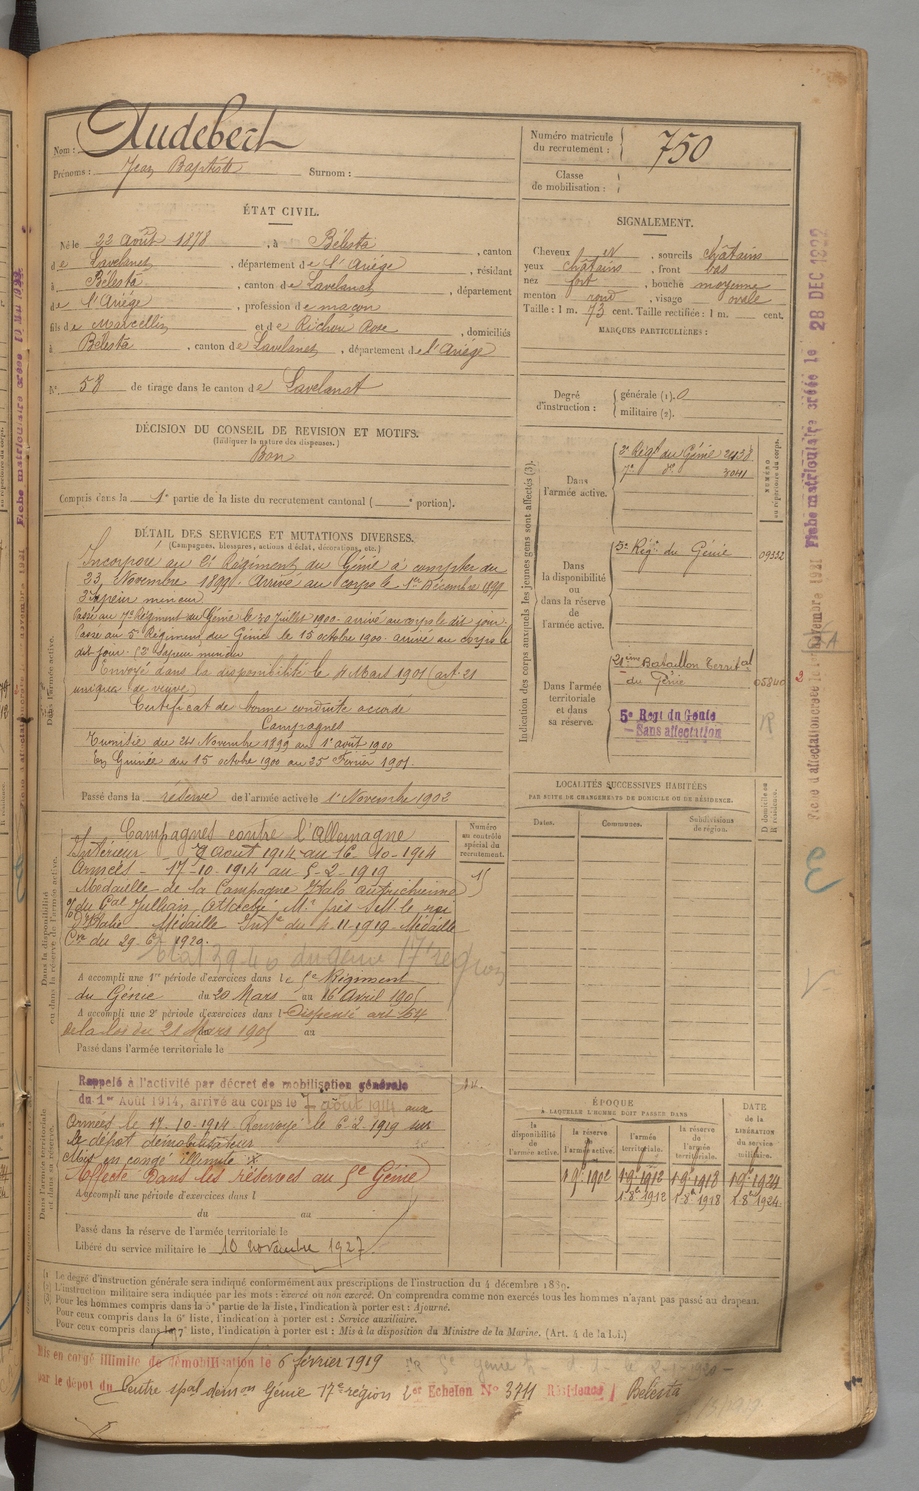 Nom : Audebert
Prénoms : Jean Baptiste Surnom :
Numéro matricule
du recrutement : 750
Classe
de mobilisation :
ÉTAT CIVIL.
Né le 22 août 1878, à Bélesta, canton
de Lavelanet, département de l'Ariège, résidant
à Bélesta, canton de Lavelanet, département
de l'Ariège, profession de maçon
fils de Marcellin et de Richou Rose, domiciliés
à Bélesta, canton de Lavelanet, département de l'Ariège
N° 58 de tirage dans le canton de Lavelanet
SIGNALEMENT.
Cheveux , sourcils châtains
yeux châtains, front bas
nez fort, bouche moyenne
menton rond, visage ovale
Taille : 1 m. 73 cent. Taille rectifiée : 1 m. cent.
MARQUES PARTICULIÈRES :
Degré
d'instruction :
générale (1). 0
militaire (2).
DÉCISION DU CONSEIL DE REVISION ET MOTIFS.
(Indiquer la nature des dispenses.)
Bon
Compris dans la 1e partie de la liste du recrutement cantonal ( e portion).
DÉTAIL DES SERVICES ET MUTATIONS DIVERSES.
(Campagnes, blessures, actions d'éclat, décorations, etc.)
Dans l'armée active.
Incorporé au 2e Régiment du Génie à compter du
23 Novembre 1899. Arrivé au corps le 1er Décembre 1899
Sapeur mineur
Passé au 7e Régiment du Génie le 30 Juillet 1900. arrivé au corps le dit jour.
Passé au 5e Régiment du Génie le 15 octobre 1900. arrivé au corps le
dit jour. Sapeur mineur
Envoyé dans la disponibilité le 4 Mars 1901 (art. 21
unique de veuve)
Certificat de bonne conduite accordé
Campagnes
Tunisie du 24 Novembre 1899 au 1er août 1900
En Guinée du 15 octobre 1900 au 25 Février 1901
Passé dans la réserve de l'armée active le 1er Novembre 1902
Indication des corps auxquels les jeunes gens sont affectés (3).
Dans
l'armée active.
2e Régt du Génie 2438
7e do 3041
NUMÉRO
au répertoire du corps.
Dans
la disponibilité
ou
dans la réserve
de
l'armée active.
5e Régt du Génie 09332
Dans l'armée
territoriale
et dans
sa réserve.
21ème Bataillon Territal
du Génie 05840
5e Regt du Génie
Sans affectation
LOCALITÉS SUCCESSIVES HABITÉES
PAR SUITE DE CHANGEMENTS DE DOMICILE OU DE RÉSIDENCE.
D domicile ou
R résidence.
Dates.
Communes.
Subdivisions
de région.
Dans la disponibilité
ou dans la réserve de l'armée active.
Numéro
au contrôle
spécial du
recrutement.
15
Campagnes contre l'Allemagne
Intérieur 7 août 1914 au 16-10-1914
Armées - 17-10-1914 au 5-2-1919
Médaille de la Campagne Italo autrichienne
du Gal Jullian Attaché Mre près S.M. le roi
d'Italie. Médaille Intée du 4-11-1919. Médaille
Cve du 1920.
A accompli une 1re période d'exercices dans le 5e Régiment
du Génie du 20 Mars au 16 Avril 1905
A accompli une 2e période d'exercices dans l Dispensé art 164
de la loi du 21 Mars 1905 au
Passé dans l'armée territoriale le
Dans l'armée territoriale
et dans sa réserve.
Rappelé à l'activité par décret de mobilisation générale
du 1er Août 1914, arrivé au corps le 7 août 1914 aux
Armées le 17-10-1914 Renvoyé le 6-2-1919 sur
le dépôt démobilisateur
Mis en congé illimité
Affecté dans les réserves au 5e Génie
A accompli une période d'exercices dans l
du au
Passé dans la réserve de l'armée territoriale le
Libéré du service militaire le 10 novembre 1927
ÉPOQUE
A LAQUELLE L'HOMME DOIT PASSER DANS
la
disponibilité
de
l'armée active.
la réserve
de
l'armée active.
l'armée
territoriale.
la réserve
de
l'armée
territoriale.
DATE
de la
LIBÉRATION
du service
militaire.
1 9e 1902 1 9e 1912 1 9e 1918 1 9e 1924
1 8e 1912 1 8e 1918 1 8e 1924
(1) Le degré d'instruction générale sera indiqué conformément aux prescriptions de l'instruction du 4 décembre 1889.
(2) L'instruction militaire sera indiquée par les mots : exercé ou non exercé. On comprendra comme non exercés tous les hommes n'ayant pas passé au drapeau.
(3) Pour les hommes compris dans la 5e partie de la liste, l'indication à porter est : Ajourné.
Pour ceux compris dans la 6e liste, l'indication à porter est : Service auxiliaire.
Pour ceux compris dans la 7e liste, l'indication à porter est : Mis à la disposition du Ministre de la Marine. (Art. 4 de la loi.)
Mis en congé illimité de démobilisation le 6 février 1919
par le dépôt du Centre spal démon Génie 17e région 1er Echelon N° 3711 Résidence Bélesta
Fiche matriculaire créée le 28 DEC 1922